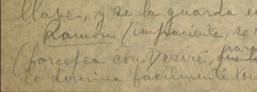 llave, y se la guarda e
Ramón (impaciente, se
(forcejea con Desiré, que
para
lo domina facilmente